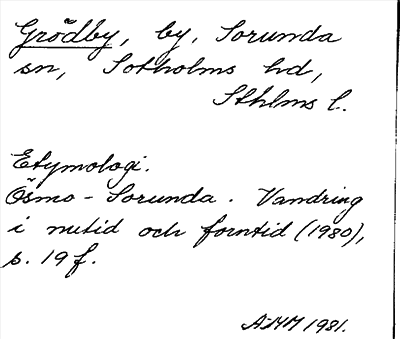 Grödby, by, Sorunda
sn, Sotholms hd,
Sthlms l.
Etymologi.
Ösmo - Sorunda. Vandring
i nutid och forntid (1980),
s. 19 f.
AMM 1981.